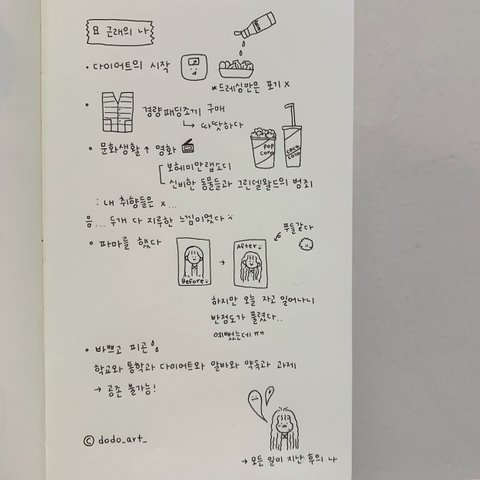 요 근래의 나
• 다이어트의 시작
*드레싱만은 포기 x
• 경량패딩조끼 구매
↳ 따땃하다
• 문화생활 ↑ 영화
보헤미안랩소디
신비한 동물들과 그린델왈드의 범죄
POP CORN
COCA COLA
: 내 취향들은 x...
음... 두개 다 지루한 느낌이었다
• 파마를 했다
Before
→
After
푸들같다
하지만 오늘 자고 일어나니
반정도가 풀렸다..
예뻤는데 ㅠㅠ
• 바쁘고 피곤
학교와 통학과 다이어트와 알바와 약속과 과제
→ 공존 불가능!
© dodo_art_
→ 모든 일이 지난 후의 나